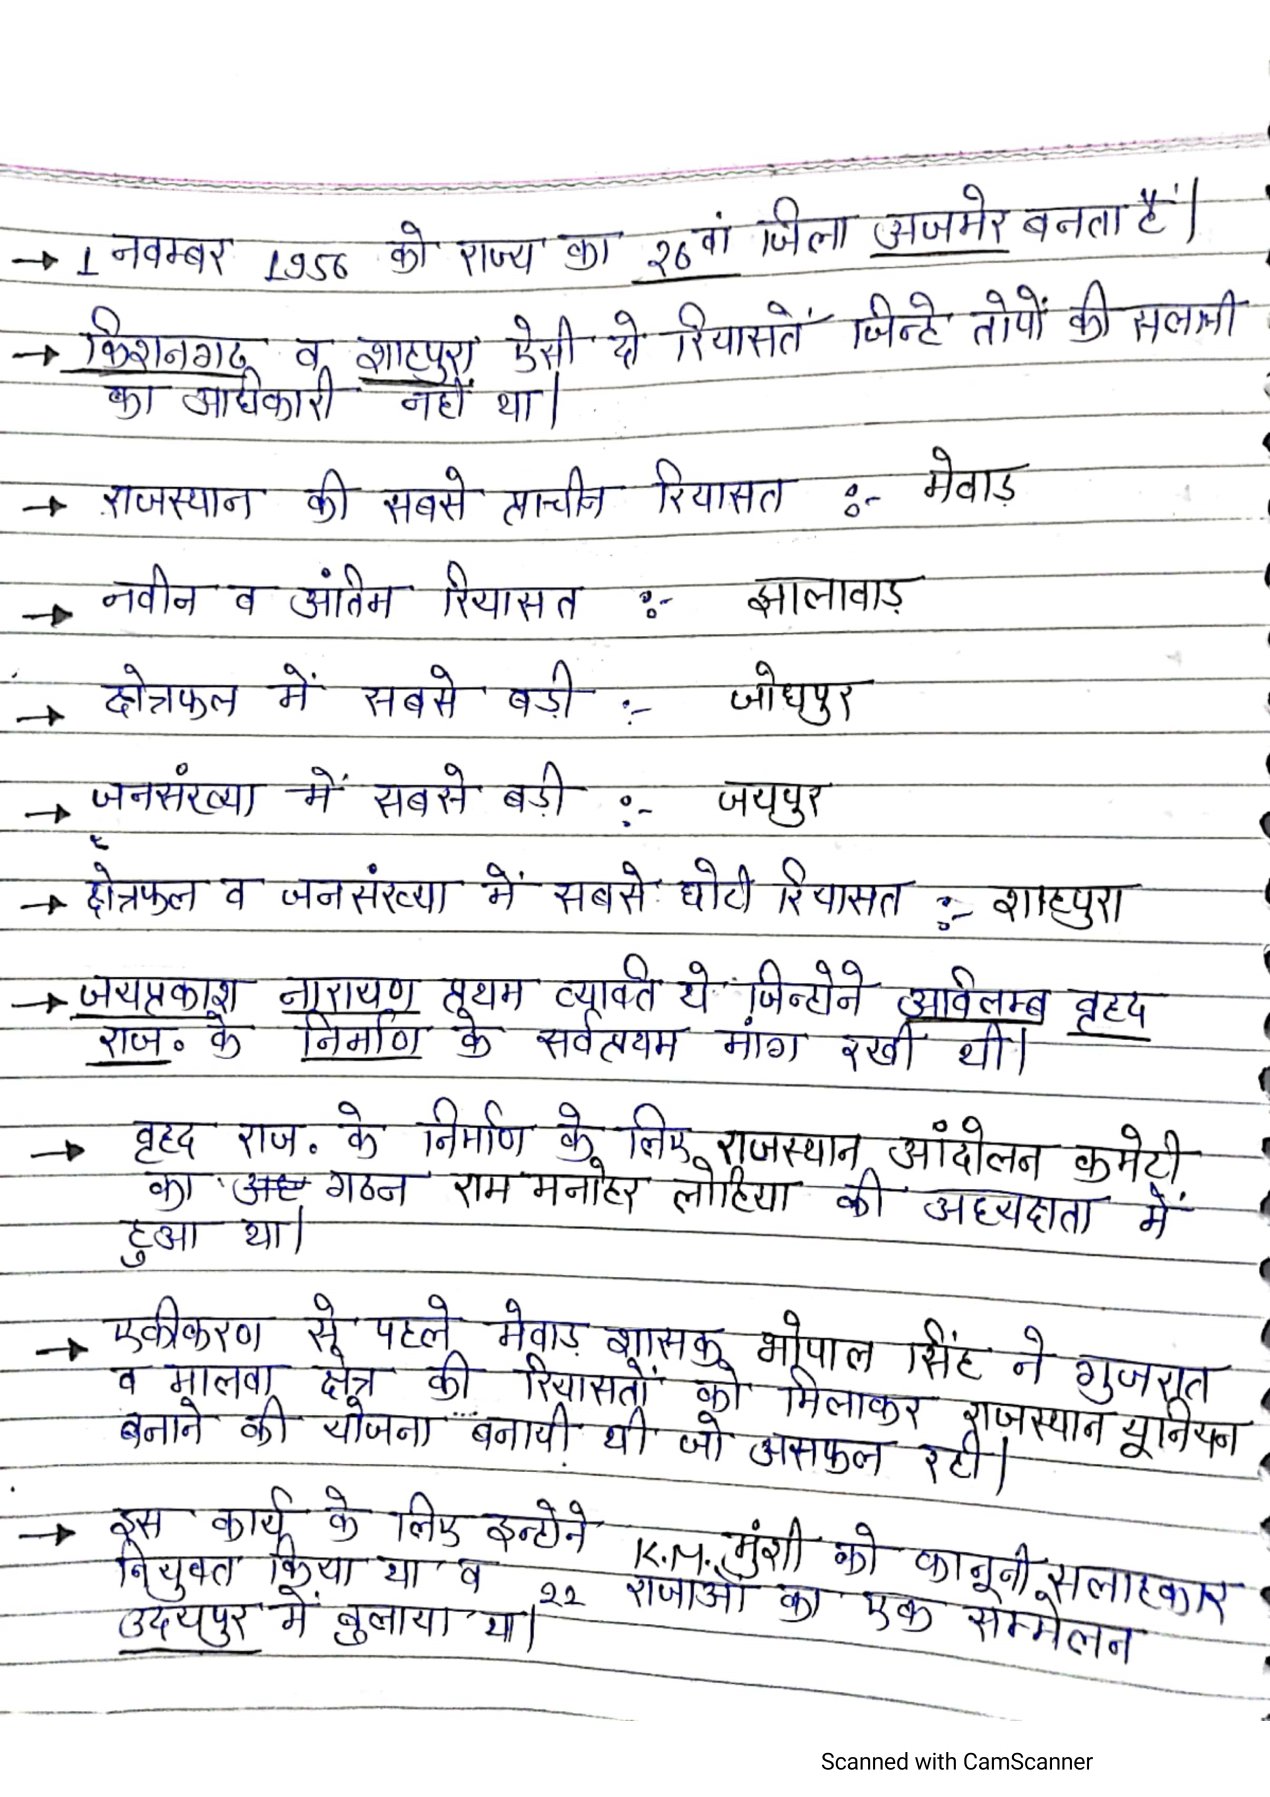 → 1 नवम्बर 1956 को राज्य का 26वां जिला अजमेर बनता है।
→ किशनगढ व शाहपुरा ऐसी दो रियासतें जिन्हे तोपों की सलामी
का अधिकारी नहीं था।
→ राजस्थान की सबसे प्राचीन रियासत :- मेवाड़
→ नवीन व अंतिम रियासत :- झालावाड़
→ क्षेत्रफल में सबसे बड़ी :- जोधपुर
→ जनसंख्या में सबसे बड़ी :- जयपुर
→ क्षेत्रफल व जनसंख्या में सबसे छोटी रियासत :- शाहपुरा
→ जयप्रकाश नारायण प्रथम व्यक्ति थे जिन्होने अविलम्ब वृहद
राज. के निर्माण के सर्वप्रथम मांग रखी थी।
→ वृहद राज. के निर्माण के लिए राजस्थान आंदोलन कमेटी
का गठन राम मनोहर लोहिया की अध्यक्षता में
हुआ था।
→ एकीकरण से पहले मेवाड़ शासक भोपाल सिंह ने गुजरात
व मालवा क्षेत्र की रियासतों को मिलाकर राजस्थान यूनियन
बनाने की योजना बनायी थी जो असफल रही।
→ इस कार्य के लिए इन्होने K.M. मुंशी को कानूनी सलाहकार
नियुक्त किया था व 22 राजाओं का एक सम्मेलन
उदयपुर में बुलाया था।
Scanned with CamScanner